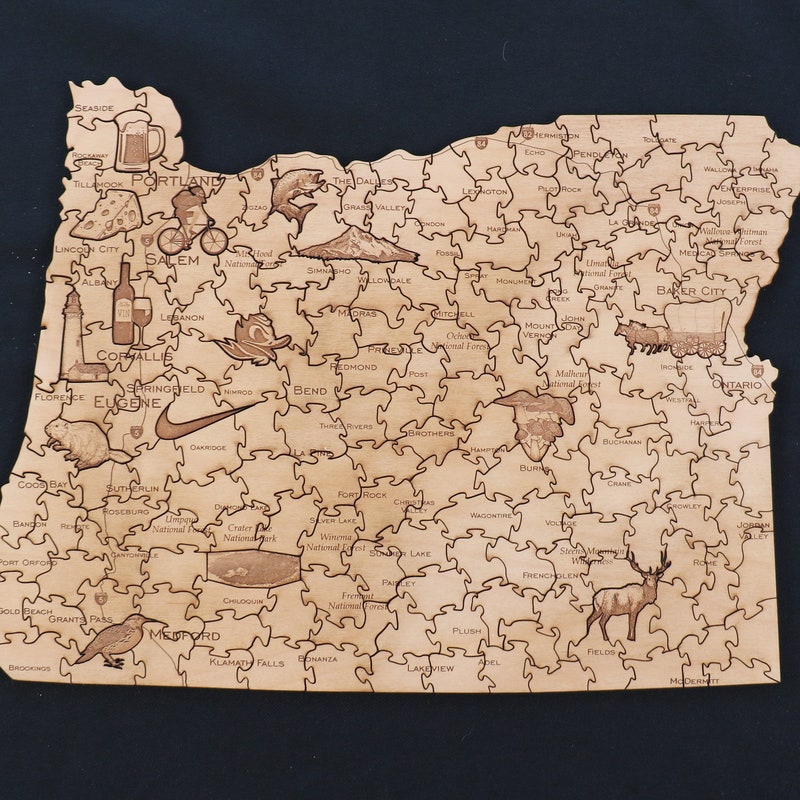 SEASIDE
84
HERMISTON
82
TOLLGATE
ROCKAWAY
BEACH
ECHO
PENDLETON
TILLAMOOK
PORTLAND
84
THE DALLES
WALLOWA
IMNAHA
LEXINGTON
PILOT ROCK
ENTERPRISE
ZIGZAG
GRASS VALLEY
JOSEPH
84
CONDON
HARDMAN
UKIAH
LA GRANDE
Wallowa-Whitman
National Forest
LINCOLN CITY
5
SALEM
Mt. Hood
National Forest
FOSSIL
MEDICAL SPRINGS
Umatilla
National Forest
SIMNASHO
WILLOWDALE
SPRAY
MONUMENT
ALBANY
GRANITE
BAKER CITY
LONG
CREEK
VIN
LEBANON
MADRAS
MITCHELL
MOUNT
VERNON
JOHN
DAY
Ochoco
National Forest
CORVALLIS
PRINEVILLE
REDMOND
POST
IRONSIDE
84
Malheur
National Forest
ONTARIO
SPRINGFIELD
NIMROD
BEND
FLORENCE
EUGENE
WESTFALL
THREE RIVERS
BROTHERS
HARPER
5
OAKRIDGE
BUCHANAN
LA PINE
HAMPTON
BURNS
COOS BAY
SUTHERLIN
CRANE
FORT ROCK
ROSEBURG
DIAMOND LAKE
CHRISTMAS
VALLEY
CROWLEY
BANDON
REMOTE
Umpqua
National Forest
Crater Lake
National Park
SILVER LAKE
WAGONTIRE
VOLTAGE
JORDAN
VALLEY
Winema
National Forest
CANYONVILLE
SUMMER LAKE
Steens Mountain
Wilderness
PORT ORFORD
ROME
FRENCHGLEN
PAISLEY
5
CHILOQUIN
Fremont
National Forest
GOLD BEACH
GRANTS PASS
MEDFORD
PLUSH
FIELDS
BROOKINGS
KLAMATH FALLS
BONANZA
LAKEVIEW
ADEL
MCDERMITT